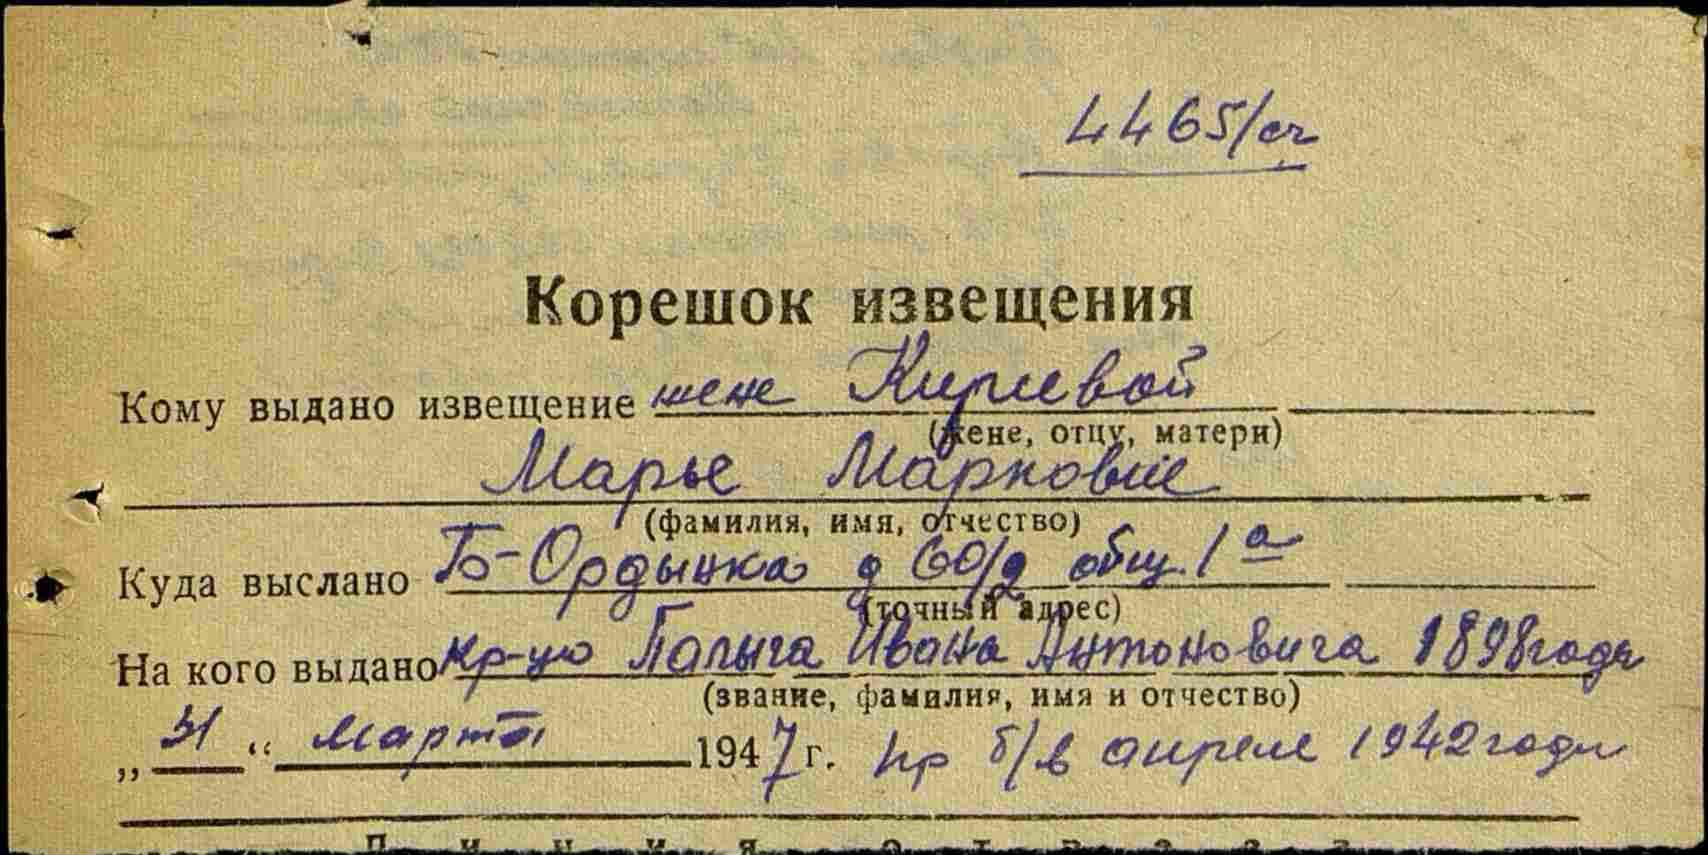 4465/сч
Корешок извещения
Кому выдано извещение жене Киржевой
(жене, отцу, матери)
Марье Марковне
(фамилия, имя, отчество)
Куда выслано Б-Ордынка д 60/2 общ. 1а
(точный адрес)
На кого выдано кр-цю Палыга Ивана Антоновича 1898 года
(звание, фамилия, имя и отчество)
„31“ марта 1947 г. пр б/в апреле 1942 года